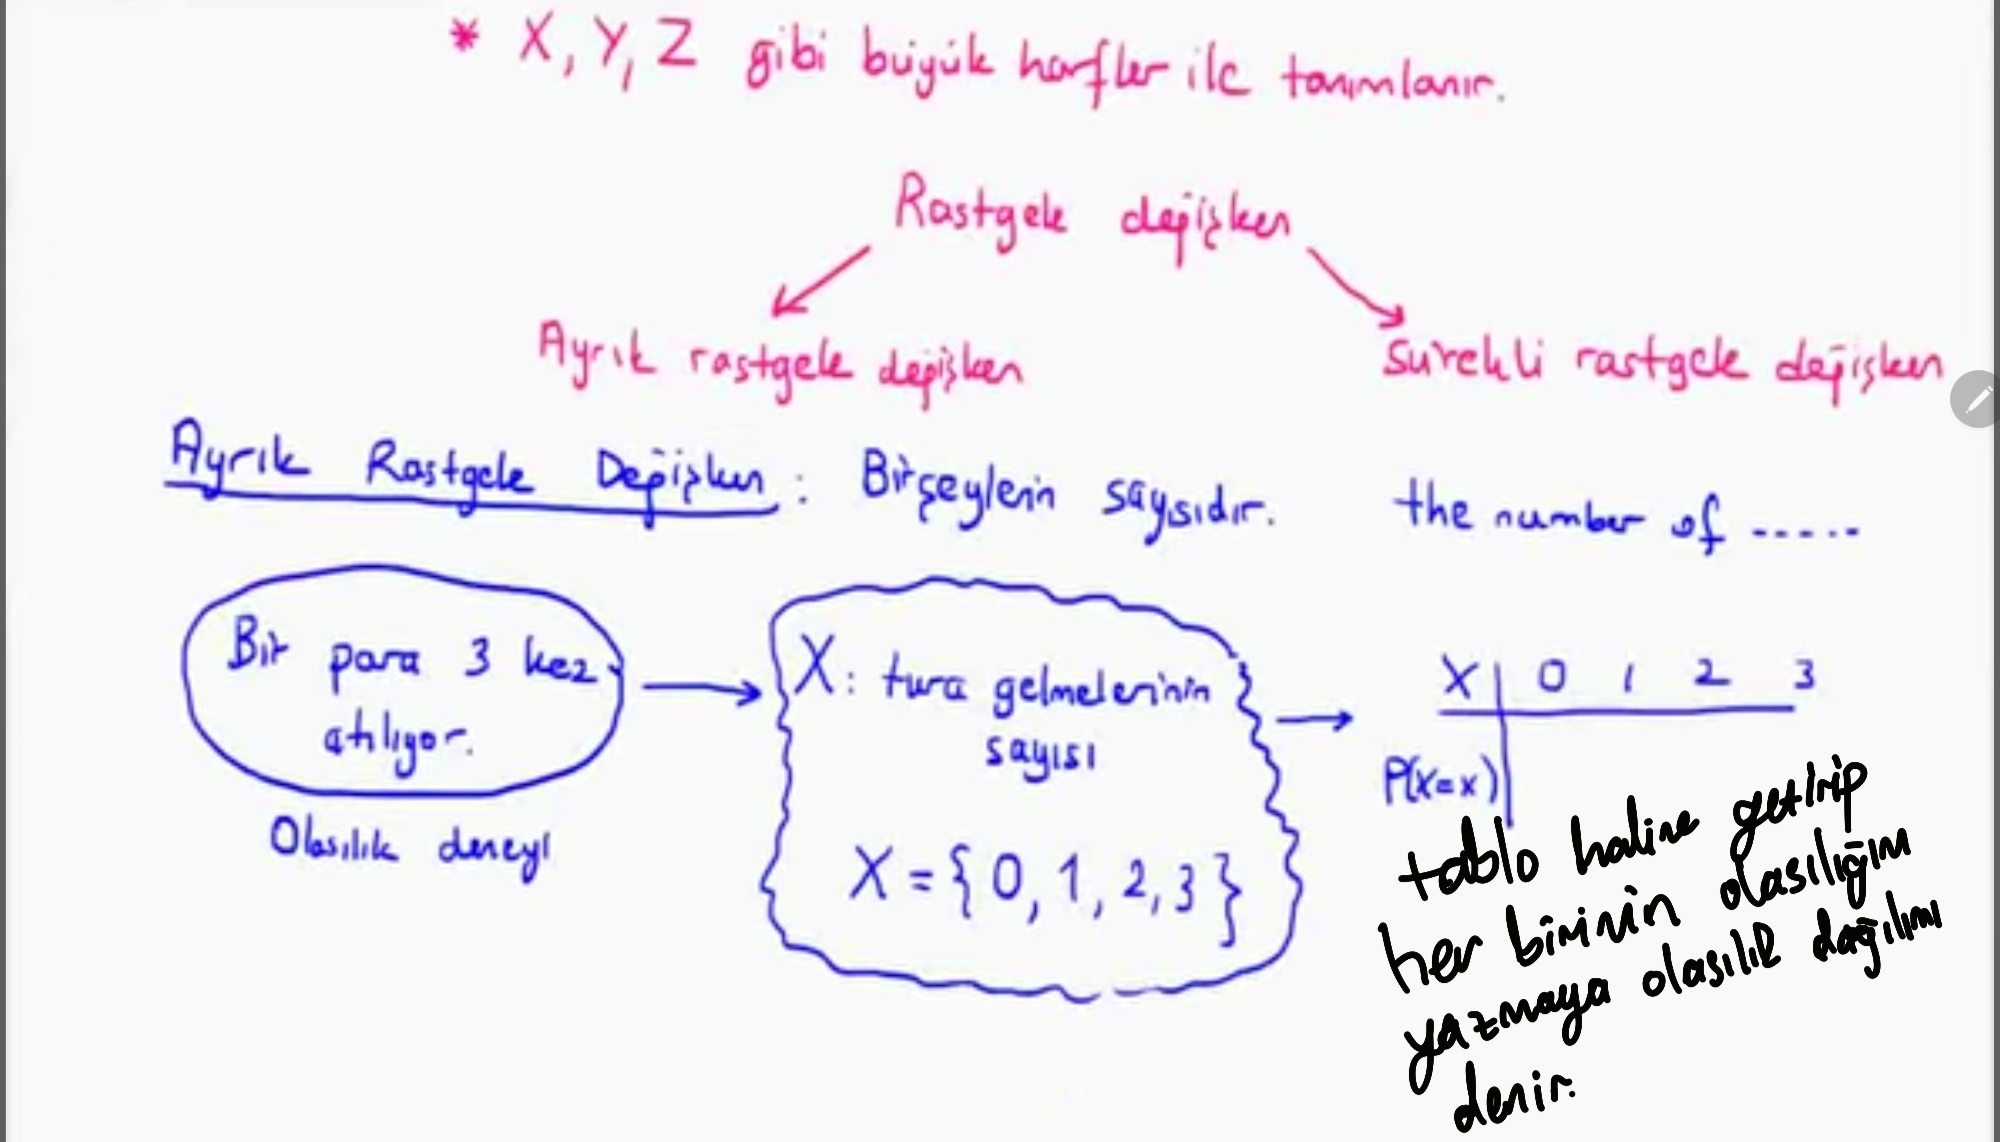 * X, Y, Z gibi büyük harfler ile tanımlanır.
Rastgele değişken
Ayrık rastgele değişken
Sürekli rastgele değişken
Ayrık Rastgele Değişken : Birşeylerin sayısıdır. the number of .....
Bir para 3 kez
atılıyor.
Olasılık deneyi
X: tura gelmelerinin
sayısı
X = {0, 1, 2, 3}
X | 0 1 2 3
P(X=x)
tablo haline getirip
her birinin olasılığını
yazmaya olasılık dağılımı
denir.